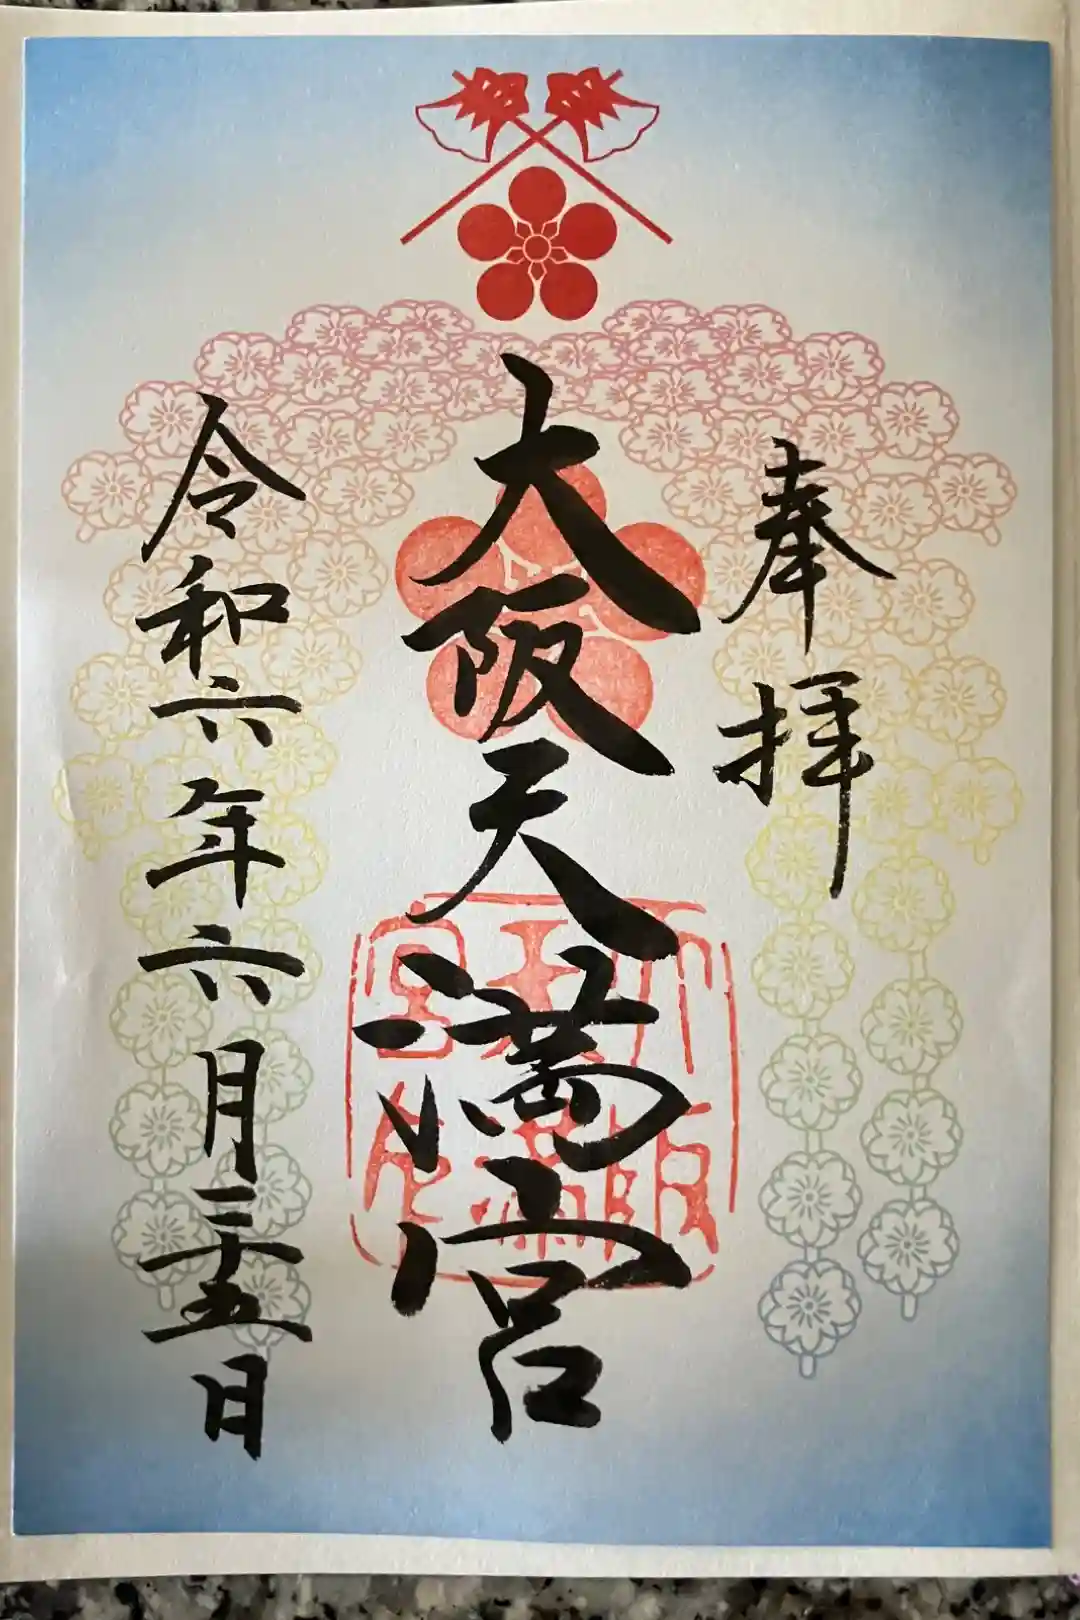 奉拝
大阪天満宮
令和六年六月二十五日